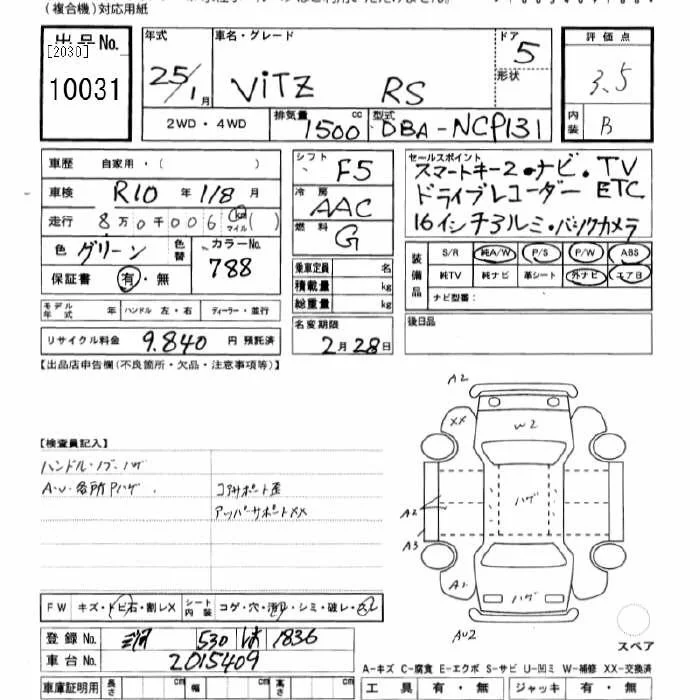 (複合機)対応用紙
出品No. [2030] 10031
年式 25/1月
車名・グレード VITZ RS
ドア 5
形状
評価点 3.5
内装 B
2WD・4WD
排気量 1500cc
型式 DBA-NCP131
車歴 自家用・( )
車検 R10年1/8月
走行 8万0千006 (km マイル)( )
色 グリーン
色替
カラーNo. 788
保証書 有・無
シフト F5
冷房 AAC
燃料 G
乗車定員 名
積載量 kg
総重量 kg
セールスポイント
スマートキー2・ナビ・TV
ドライブレコーダー ETC
16インチアルミ・バックカメラ
装備品 S/R 純A/W P/S P/W ABS
純TV 純ナビ 革シート 外ナビ エアB
ナビ型番:
モデル年式 年 ハンドル 左・右 ディーラー・並行
リサイクル料金 9,840 円 預託済
名変期限 2月28日
後日品
【出品店申告欄(不良箇所・欠品・注意事項等)】
【検査員記入】
ハンドル・ノブ・ハゲ
A・U・各所Pハゲ.
コアサポート歪
アッパーサポートXX
A2
XX
W2
ハゲ
A2
A3
A2
ハゲ
AU2
スペア
FW キズ・トビ石・割レX シート内装 コゲ・穴・汚レ・シミ・破レ・
登録No. 530 1836
車台No. 2015409
A-キズ C-腐食 E-エクボ S-サビ U-凹ミ W-補修 XX-交換済
車庫証明用 長さ cm 幅 cm 高さ cm
工具 有・無 ジャッキ 有・無